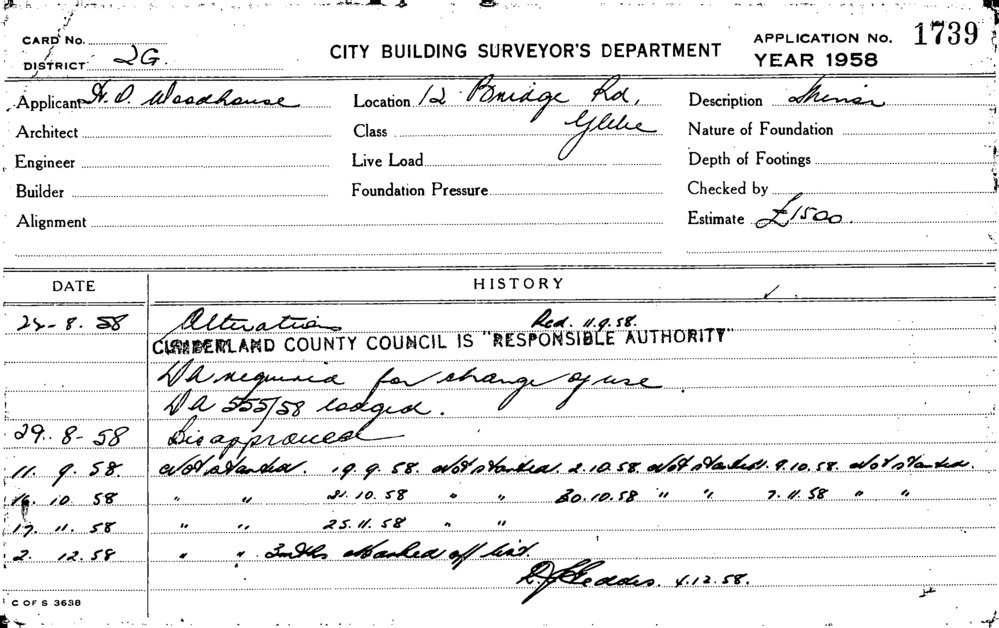 CARD No.
DISTRICT 2G.
CITY BUILDING SURVEYOR'S DEPARTMENT
APPLICATION No. 1739
YEAR 1958
Applicant H. O. Woodhouse
Location 12 Bridge Rd,
Glebe
Description
Architect
Class
Nature of Foundation
Engineer
Live Load
Depth of Footings
Builder
Foundation Pressure
Checked by
Alignment
Estimate £1500
DATE HISTORY
8. 58 Alterations Red. 11.9.58.
CUMBERLAND COUNTY COUNCIL IS "RESPONSIBLE AUTHORITY"
DA required for change of use.
DA 555/58 lodged.
29. 8-58 Disapproved
11. 9. 58. Not started. 19.9.58. Not started. 2.10.58. Not started. 9.10.58. Not started.
16. 10. 58 " " 21.10.58 " " 30.10.58 " " 7.11.58 " "
17. 11. 58 " " 25.11.58 " "
2. 12.58 " " 3mths marked off list.
4.12.58.
C OF S 3638